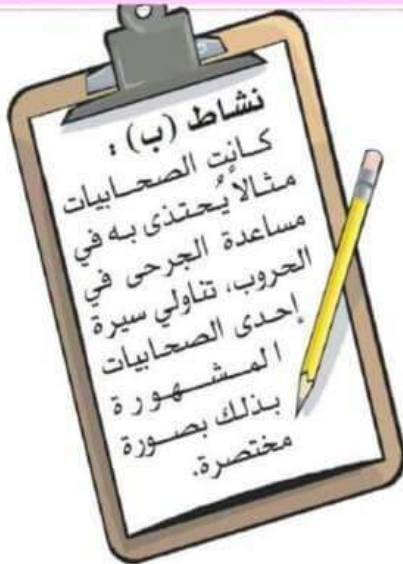 نشاط (ب) :
كـانت الصحـابيات
مثـالاً يُحتذى بـه في
مساعدة الجرحى في
الحروب، تناولي سيرة
إحدى الصحابيات
المـشـهـورة
بـذلك بصـورة
مختصرة.